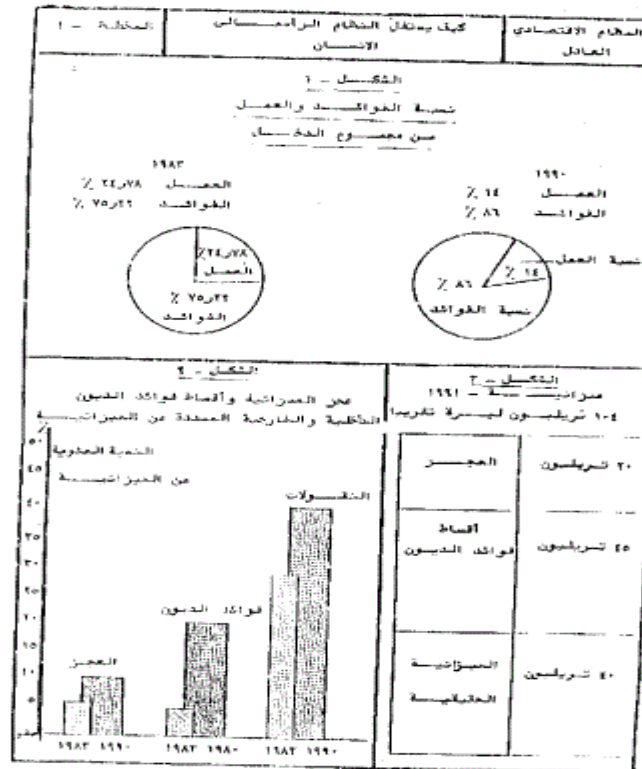 النظام الاقتصادي العادل
كيف يستغل النظام الرأسمالي الانسان
المخطط - ١
الشكل - ١
نسبة الفوائد والعمل
من مجموع الدخل
١٩٩٠
العمل ١٤ ٪
الفوائد ٨٦ ٪
١٩٨٣
العمل ٢٤٫٧٨ ٪
الفوائد ٧٥٫٢٢ ٪
نسبة العمل
١٤ ٪
٨٦ ٪
نسبة الفوائد
٢٤٫٧٨٪
العمل
٧٥٫٢٢ ٪
الفوائد
الشكل - ٣
ميزانيـة - ١٩٩١
١٠٤ تريليون ليرة تقريبا
العجز
٢٠ تريليون
أقساط
فوائد الديون
٤٥ تريليون
الميزانية
الحقيقية
٤٠ تريليون
الشكل - ٢
عجز الميزانية وأقساط فوائد الديون
الداخلية والخارجية المسددة من الميزانية
النسبة المئوية
من الميزانية
٪
٥٠
٤٥
٤٠
٣٥
٣٠
٢٥
٢٠
١٥
١٠
٥
صفر
العجز
فوائد الديون
١٩٨٣ ١٩٩٠
١٩٨٣ ١٩٨٠
١٩٨٣ ١٩٩٠